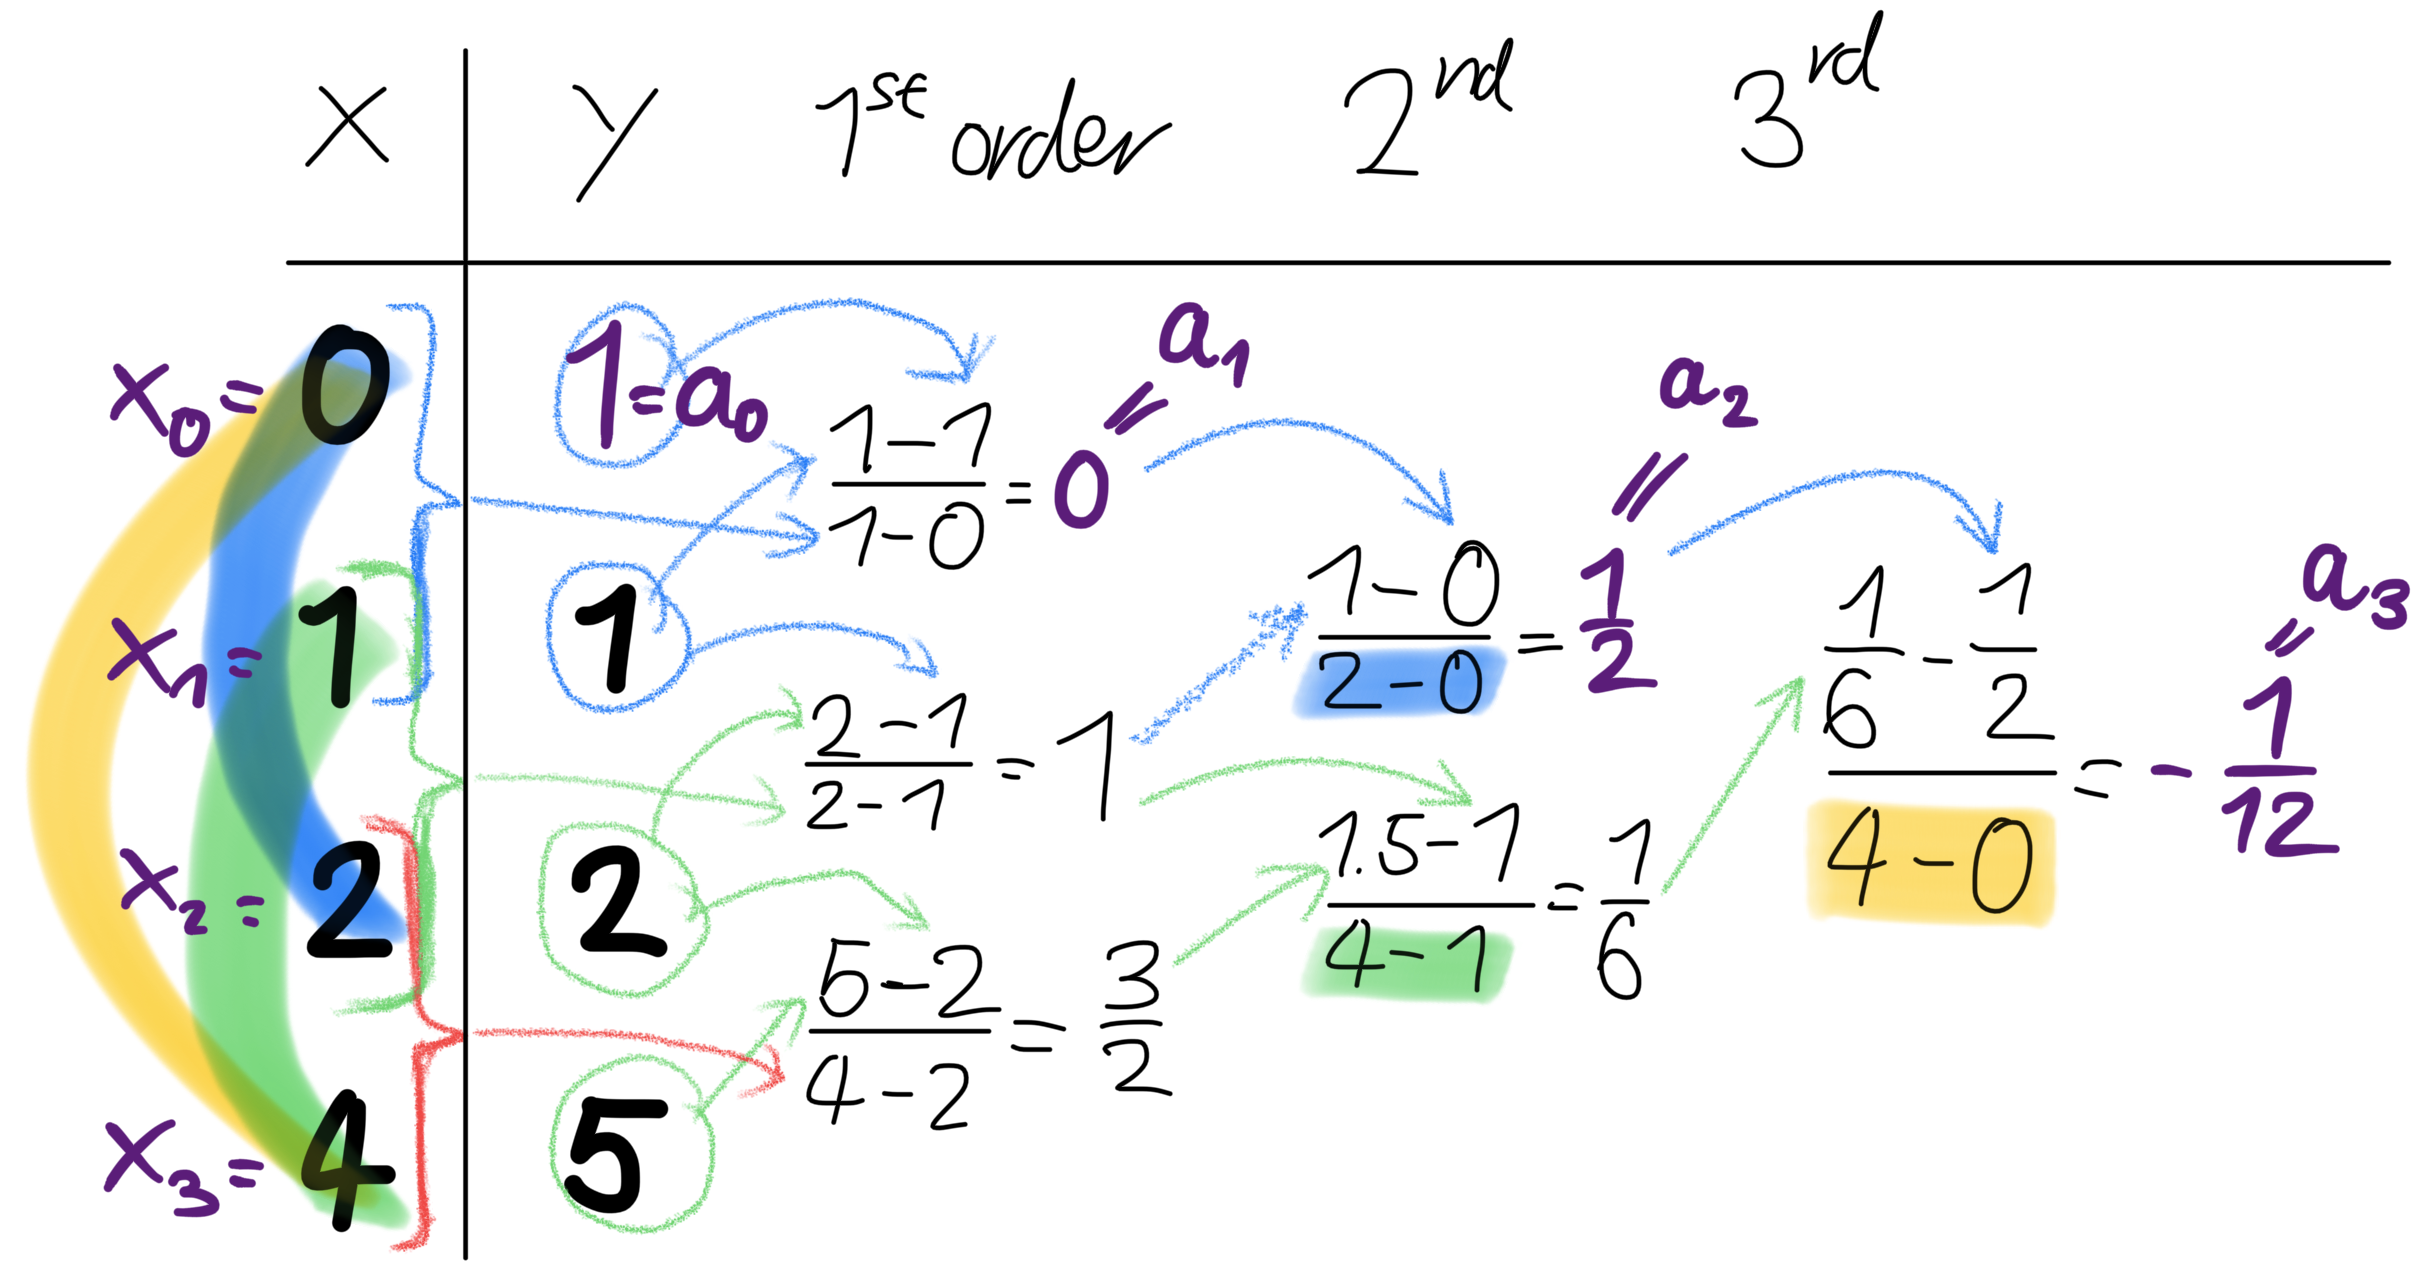 x y 1st order 2nd 3rd
x0 = 0 1 = a0
(1-1)/(1-0) = 0 = a1
x1 = 1 1
(1-0)/(2-0) = 1/2 = a2
(2-1)/(2-1) = 1
(1/6 - 1/2)/(4-0) = -1/12 = a3
x2 = 2 2
(1.5-1)/(4-1) = 1/6
(5-2)/(4-2) = 3/2
x3 = 4 5